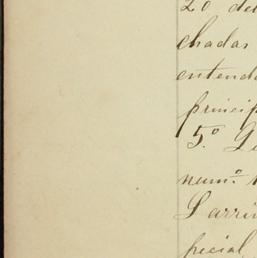 20 de
chadas
entend
princip
5º
numº
Larri
pecial